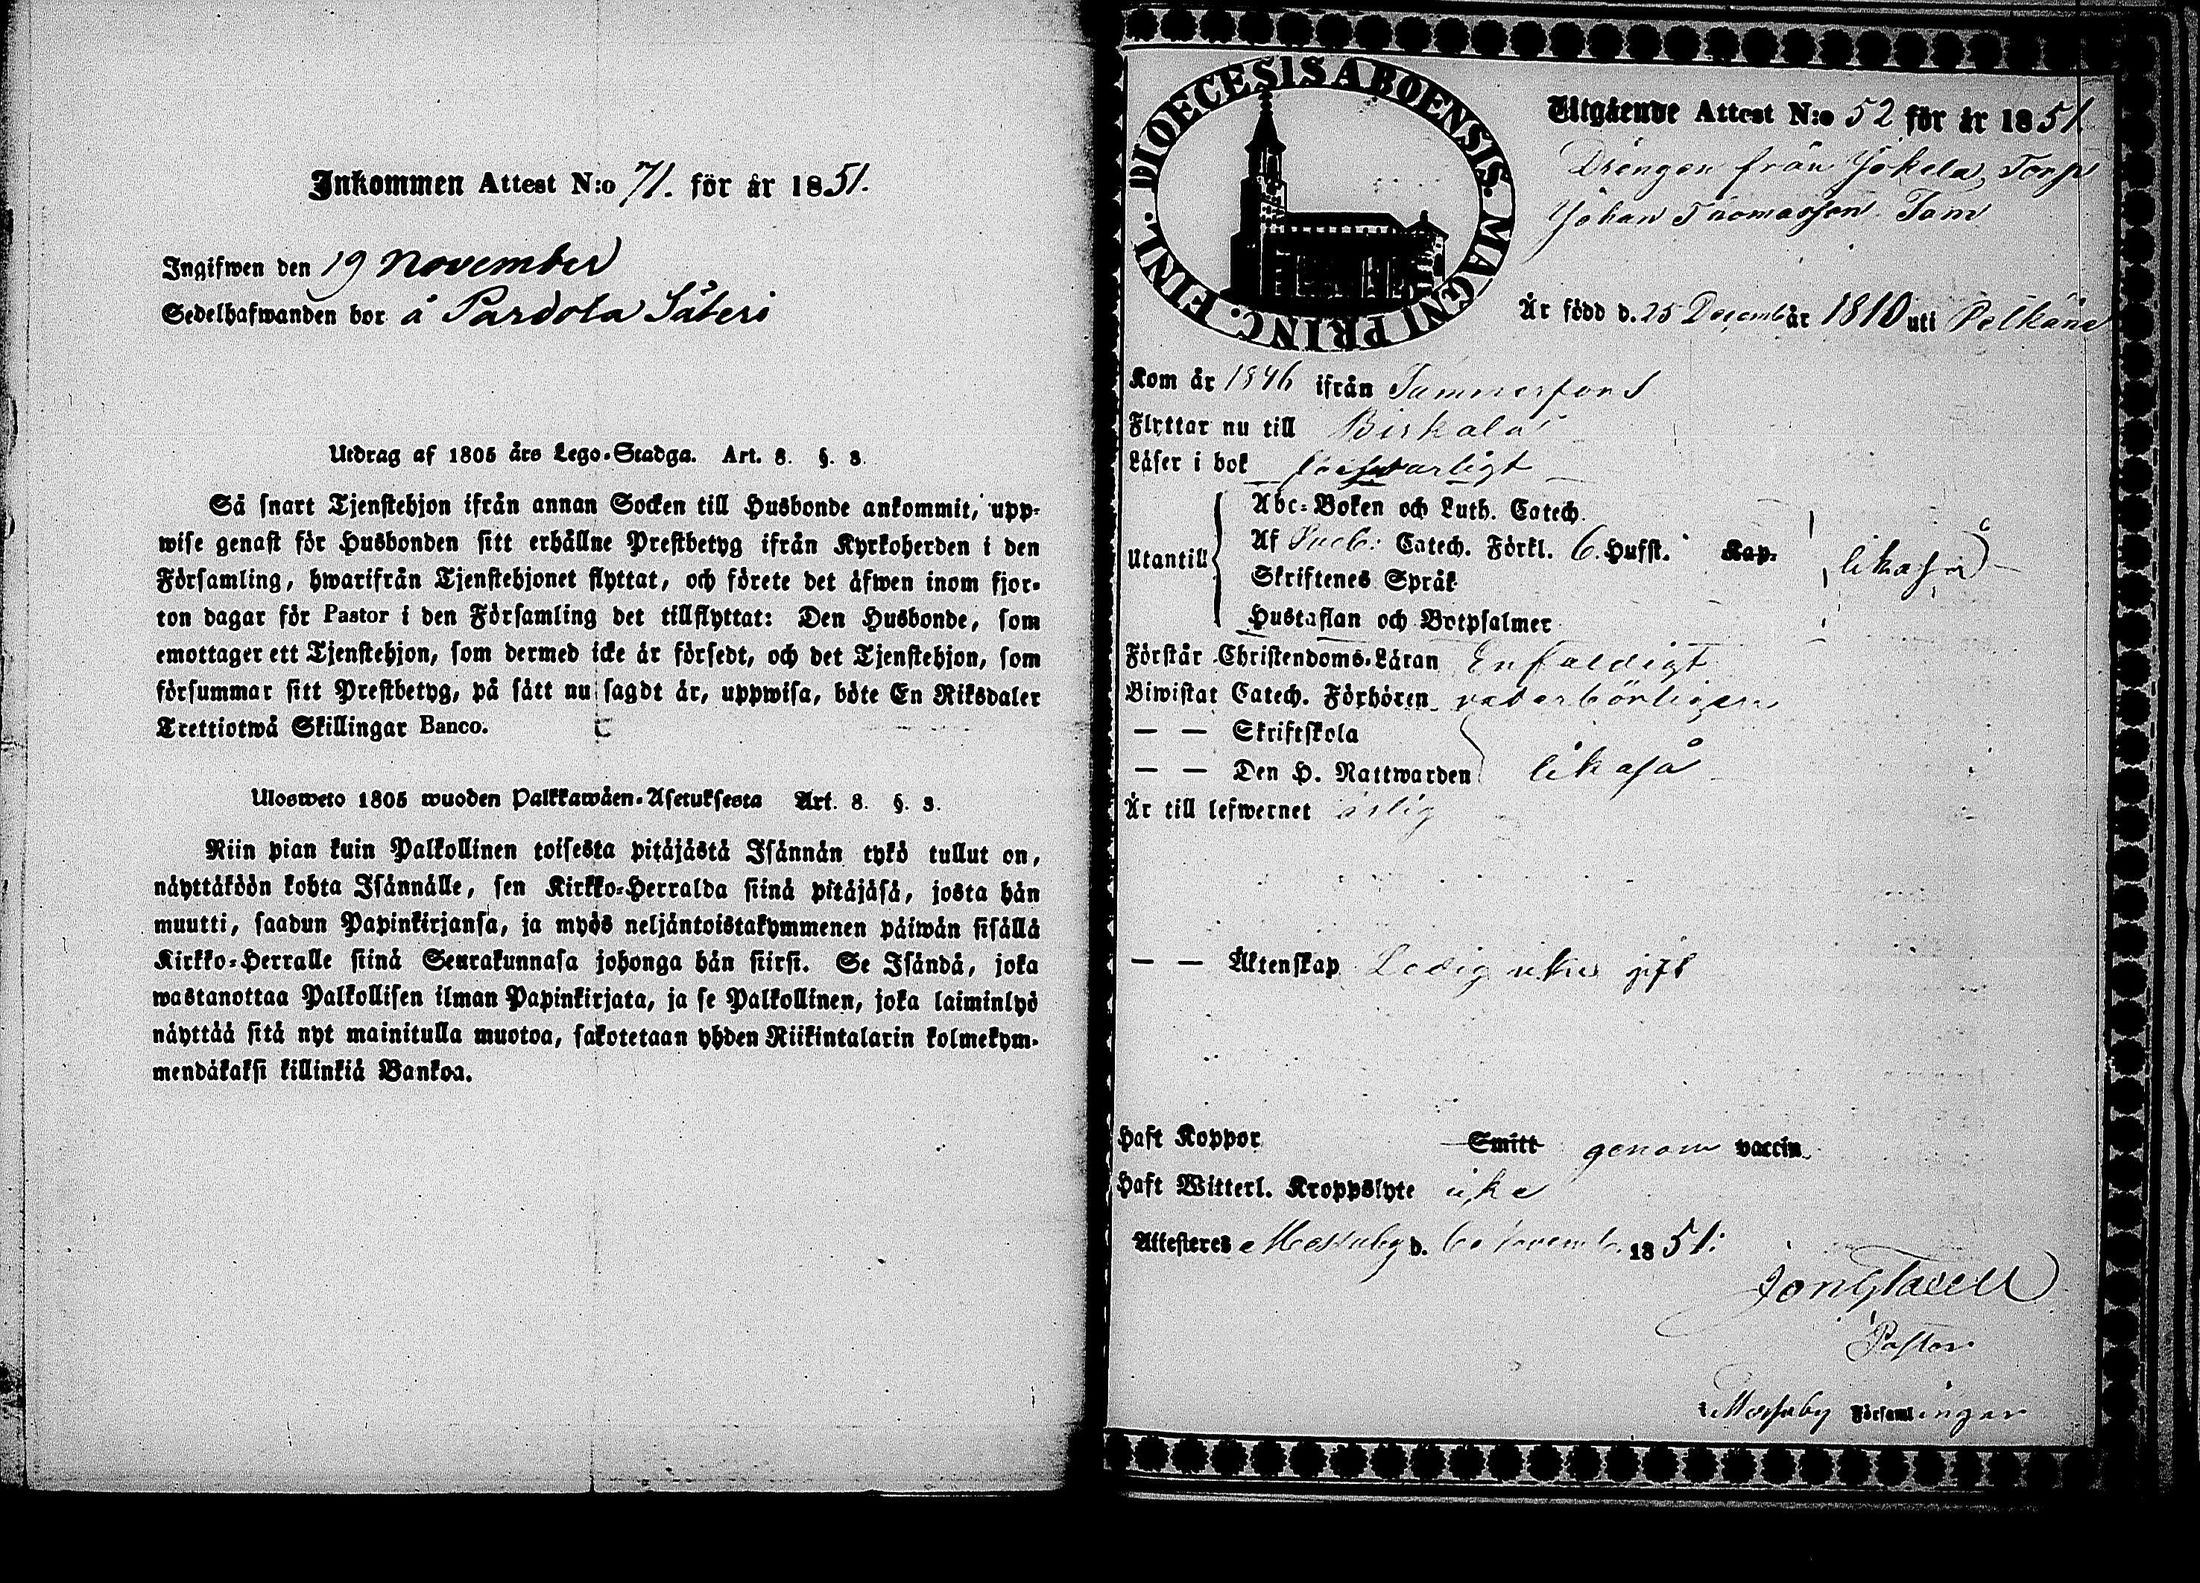 Inkommen Attest N:o 71. för år 1851.
Ingifwen den 19 November
Sedelhafwanden bor å Pardola Säteri
Utdrag af 1805 års Lego-Stadga. Art. 8. §. 3.
Så snart Tjenstehjon ifrån annan Socken till Husbonde ankommit, upp-
wise genast för Husbonden sitt erhållne Prestbetyg ifrån Kyrkoherden i den
Församling, hwarifrån Tjenstehjonet flyttat, och förete det äfwen inom fjor-
ton dagar för Pastor i den Församling det tillflyttat: Den Husbonde, som
emottager ett Tjenstehjon, som dermed icke är försedt, och det Tjenstehjon, som
försummar sitt Prestbetyg, på sätt nu sagdt är, uppwisa, böte En Riksdaler
Trettiotwå Skillingar Banco.
Ulosweto 1805 wuoden Palkkawäen-Asetuksesta Art. 8. §. 3.
Niin pian kuin Palkollinen toisesta pitäjästä Isännän tykö tullut on,
näyttäköön kohta Isännälle, sen Kirkko-Herralda siinä pitäjäsä, josta hän
muutti, saadun Papinkirjansa, ja myös neljäntoistakymmenen päiwän sisällä
Kirkko-Herralle siinä Seurakunnasa johonga hän siirsi. Se Isändä, joka
wastanottaa Palkollisen ilman Papinkirjata, ja se Palkollinen, joka laiminlyö
näyttää sitä nyt mainitulla muotoa, sakotetaan yhden Riikintalarin kolmekym-
mendäkaksi killinkiä Bankoa.
DIOECESIS ABOENSIS. MAGNI PRINC. FINL.
Utgående Attest N:o 52 för år 1851.
Drengen från Jokela Torp
Johan Thomasson Tam
Är född d. 25 Decemb år 1810 uti Pelkäne
Kom år 1846 ifrån Tammerfors
Flyttar nu till Birkala
Läser i bok försvarligt
Utantill
Abc-Boken och Luth. Catech.
Af Sveb: Catech. Förkl. 6. Hufst. Kap.
Skriftenes Språk
Hustaflan och Botpsalmer
likaså
Förstår Christendoms-Läran Enfaldigt
Biwistat Catech. Förhören vederbörligen
— — Skriftskola
— — Den H. Nattwarden likaså
Är till lefwernet ärlig
— — Äktenskap Ledig icke gift
Haft Koppor Smitt genom vaccin.
Haft Witterl. Kroppslyte icke
Attesteras Messuby d. 6 Novemb. 1851.
Pastor
Messuby Församlingar